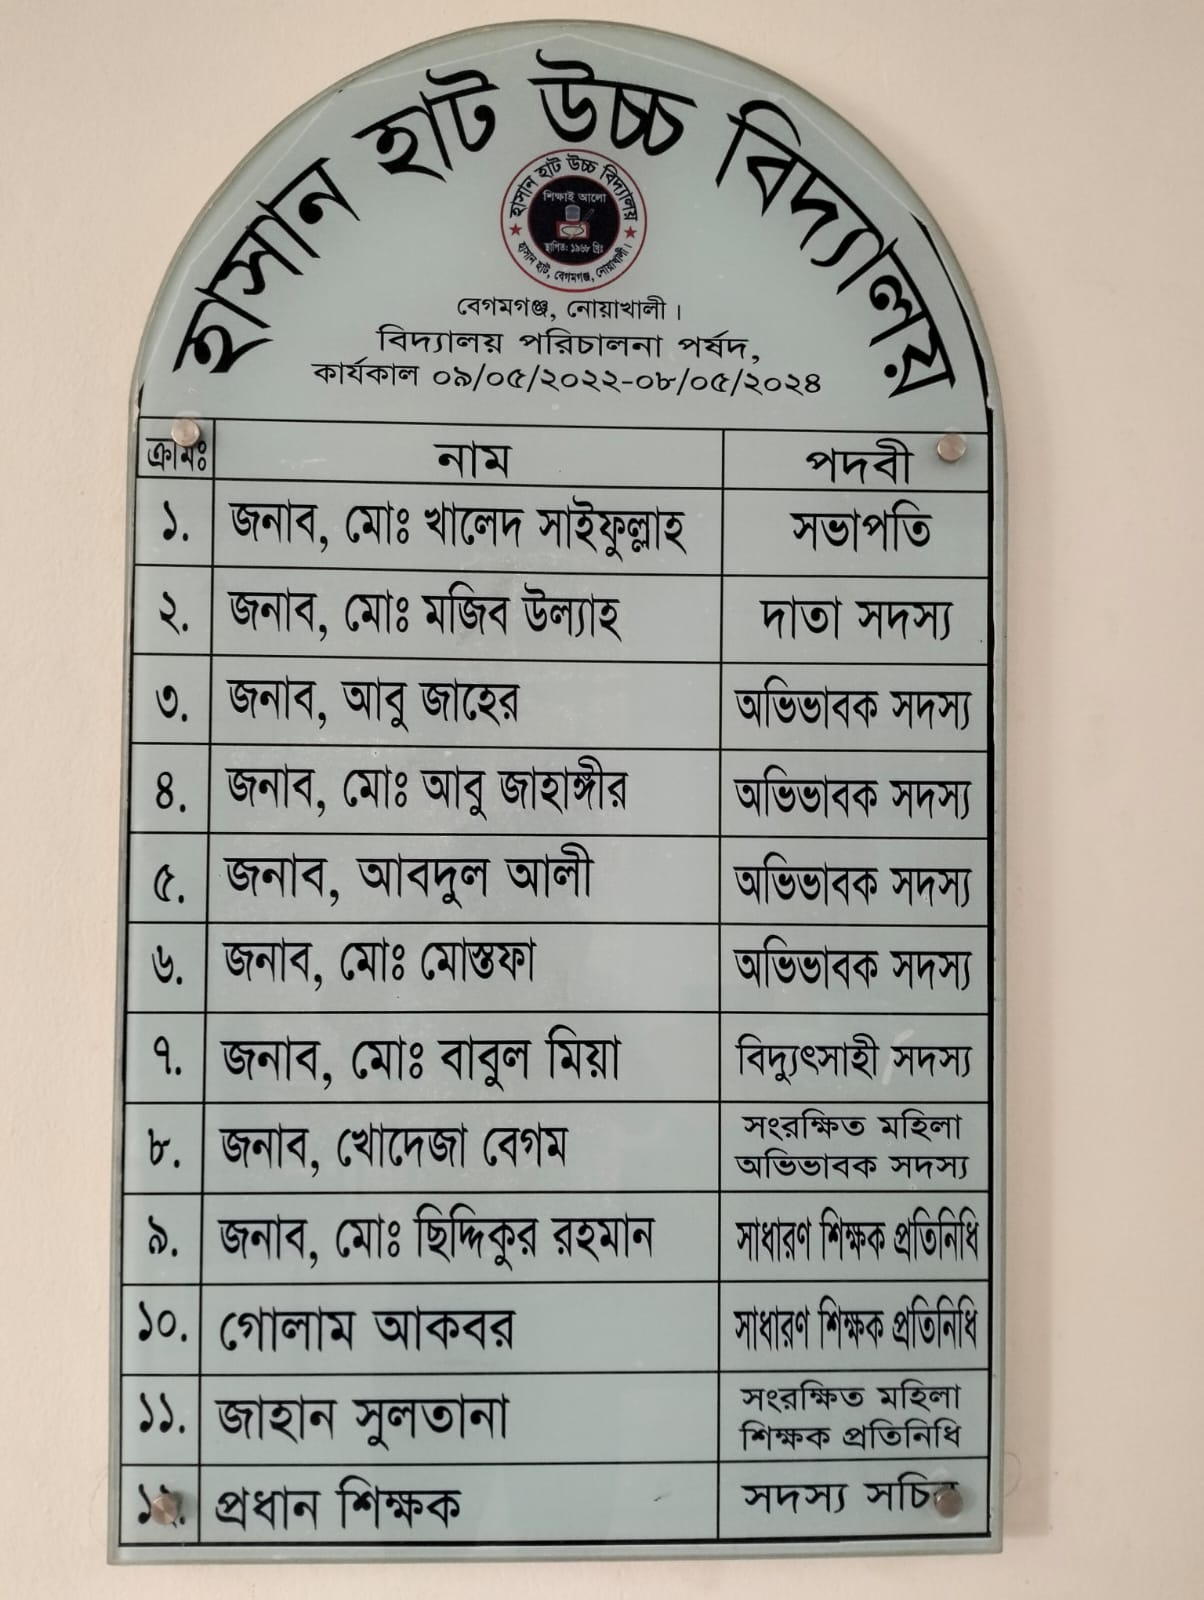 হাসান হাট উচ্চ বিদ্যালয়
হাসান হাট উচ্চ বিদ্যালয়
শিক্ষাই আলো
স্থাপিত: ১৯৬৮ খ্রিঃ
হাসান হাট, বেগমগঞ্জ, নোয়াখালী।
বেগমগঞ্জ, নোয়াখালী।
বিদ্যালয় পরিচালনা পর্ষদ,
কার্যকাল ০৯/০৫/২০২২-০৮/০৫/২০২৪
ক্রমিঃ নাম পদবী
১. জনাব, মোঃ খালেদ সাইফুল্লাহ সভাপতি
২. জনাব, মোঃ মজিব উল্যাহ দাতা সদস্য
৩. জনাব, আবু জাহের অভিভাবক সদস্য
৪. জনাব, মোঃ আবু জাহাঙ্গীর অভিভাবক সদস্য
৫. জনাব, আবদুল আলী অভিভাবক সদস্য
৬. জনাব, মোঃ মোস্তফা অভিভাবক সদস্য
৭. জনাব, মোঃ বাবুল মিয়া বিদ্যুৎসাহী সদস্য
৮. জনাব, খোদেজা বেগম সংরক্ষিত মহিলা
অভিভাবক সদস্য
৯. জনাব, মোঃ ছিদ্দিকুর রহমান সাধারণ শিক্ষক প্রতিনিধি
১০. গোলাম আকবর সাধারণ শিক্ষক প্রতিনিধি
১১. জাহান সুলতানা সংরক্ষিত মহিলা
শিক্ষক প্রতিনিধি
১২. প্রধান শিক্ষক সদস্য সচিব